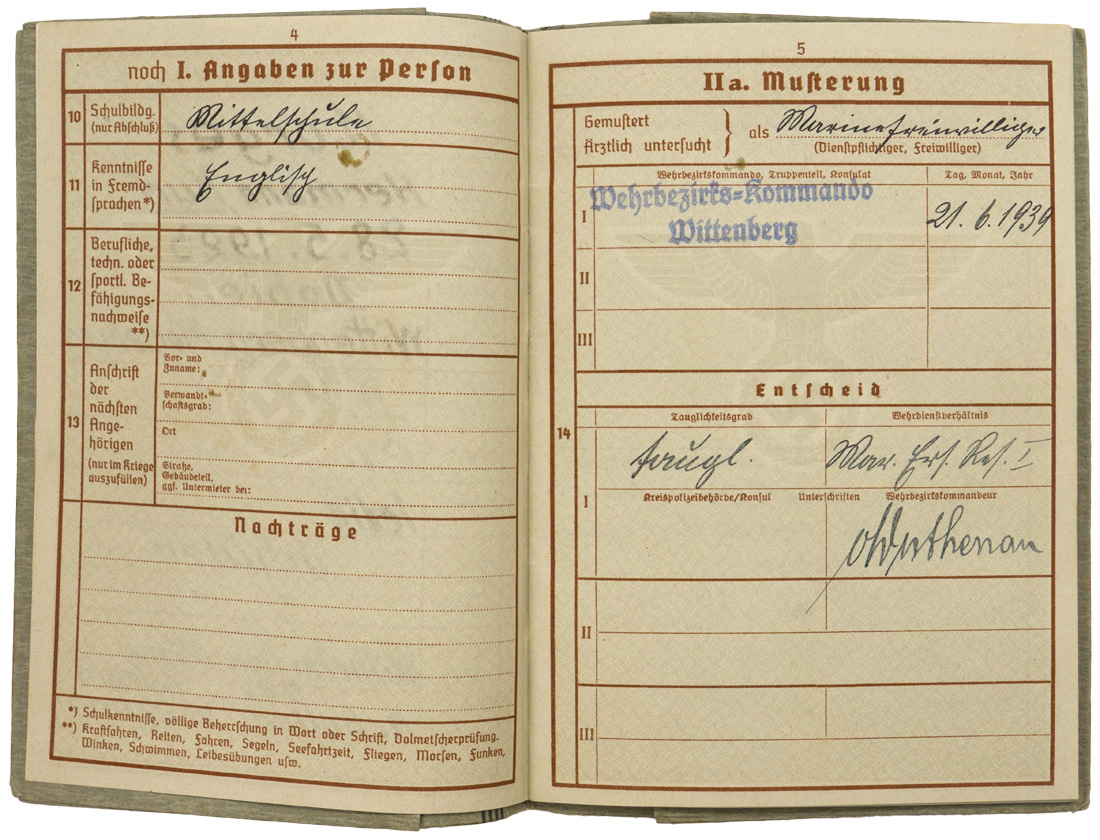 4
noch I. Angaben zur Person
10
Schulbildg.
(nur Abschluß)
Mittelschule
11
Kenntnisse
in Fremd-
sprachen*)
Englisch
12
Berufliche,
techn. oder
sportl. Be-
fähigungs-
nachweise
**)
13
Anschrift
der
nächsten
Ange-
hörigen
(nur im Kriege
auszufüllen)
Vor- und
Zuname:
Verwandt-
schaftsgrad:
Ort
Straße,
Gebäudeteil,
ggf. Untermieter bei:
Nachträge
*) Schulkenntnisse, völlige Beherrschung in Wort oder Schrift, Dolmetscherprüfung.
**) Kraftfahren, Reiten, Fahren, Segeln, Seefahrtzeit, Fliegen, Morsen, Funken,
Winken, Schwimmen, Leibesübungen usw.
5
IIa. Musterung
Gemustert
Ärztlich untersucht
als Marinefreiwilliger
(Dienstpflichtiger, Freiwilliger)
Wehrbezirkskommando, Truppenteil, Konsulat
Tag, Monat, Jahr
I
Wehrbezirks-Kommando
Wittenberg
21. 6. 1939
II
III
Entscheid
14
Tauglichkeitsgrad
Wehrdienstverhältnis
I
taugl.
Mar. Ers. Res. I
Kreispolizeibehörde/Konsul
Unterschriften
Wehrbezirkskommandeur
II
III